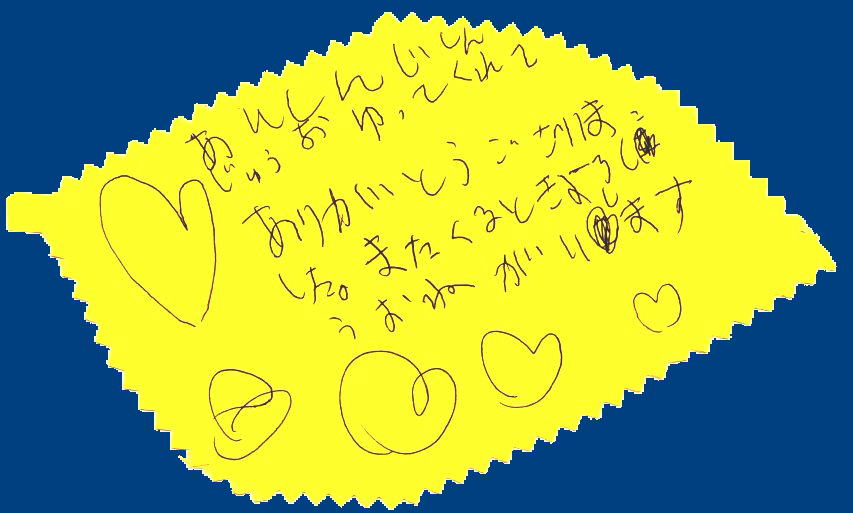 あんしんじしん
じゅうおゆってくれて
ありがとうございま
した。またくるときよろし
うおねがいします